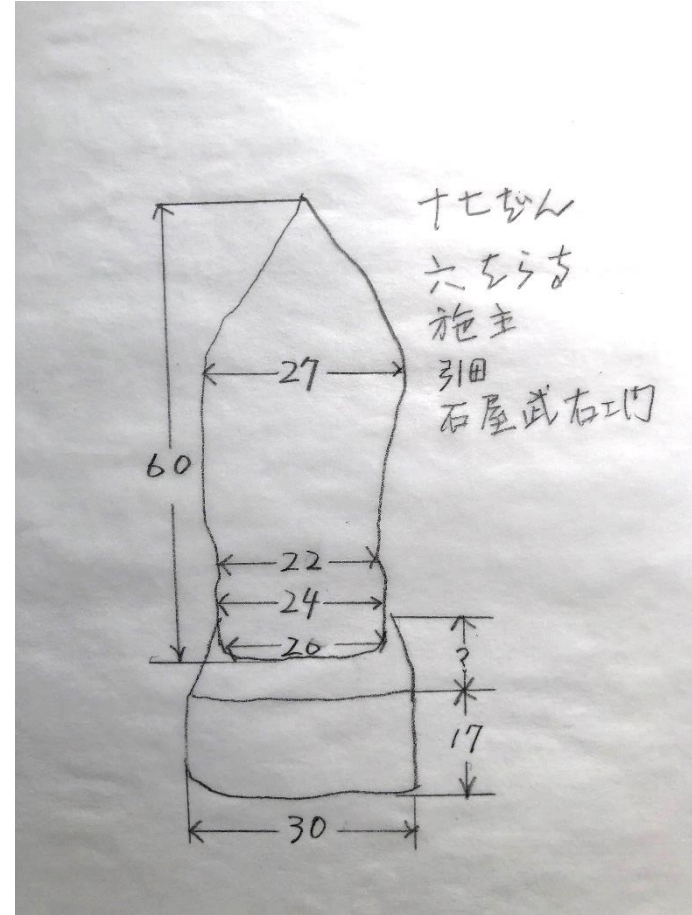 十七ばん
六はら寺
施主
引田
石屋武右エ門
27
60
22
24
20
?
17
30